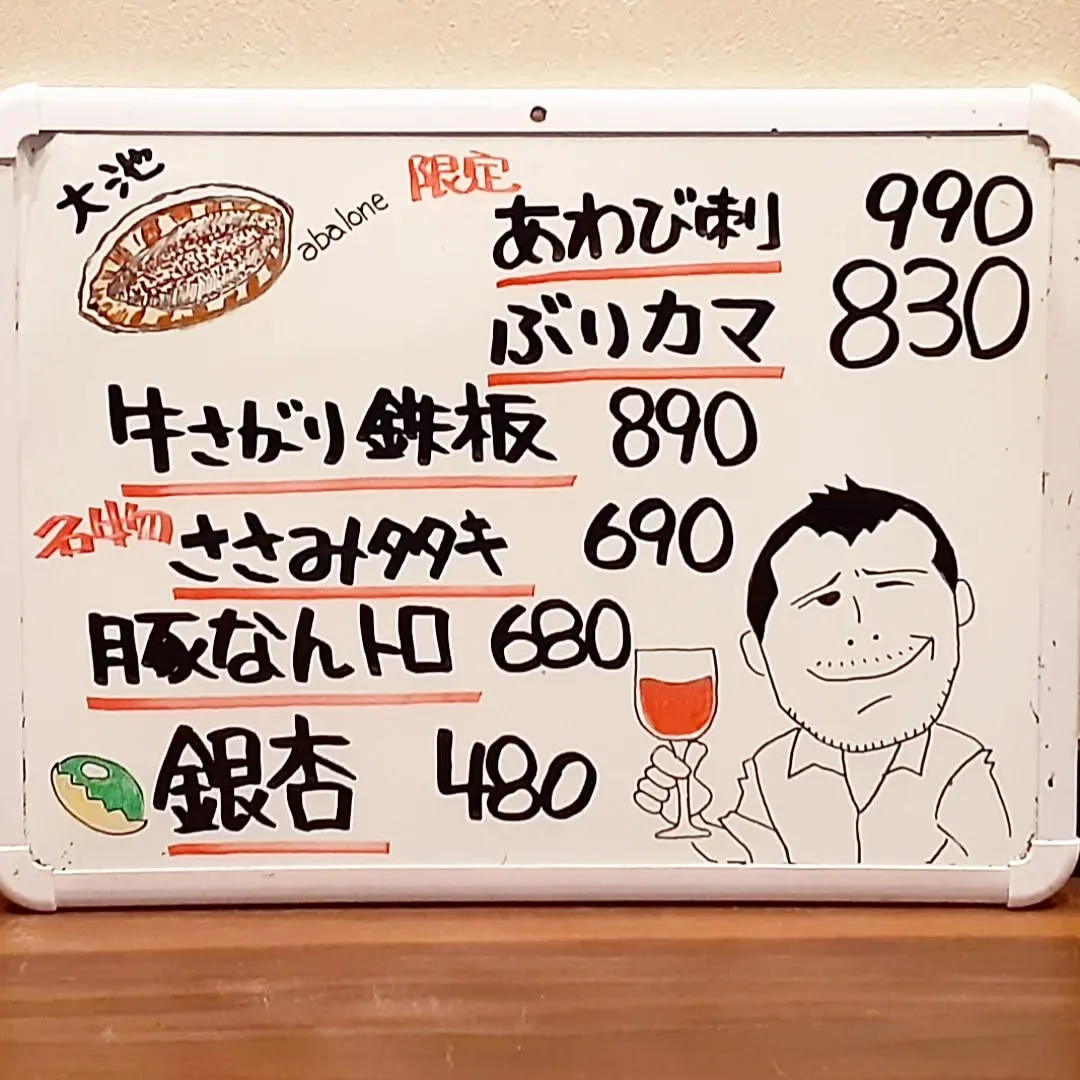 大池
abalone
限定
あわび刺 990
ぶりカマ 830
牛さがり鉄板 890
名物 ささみタタキ 690
豚なんトロ 680
銀杏 480